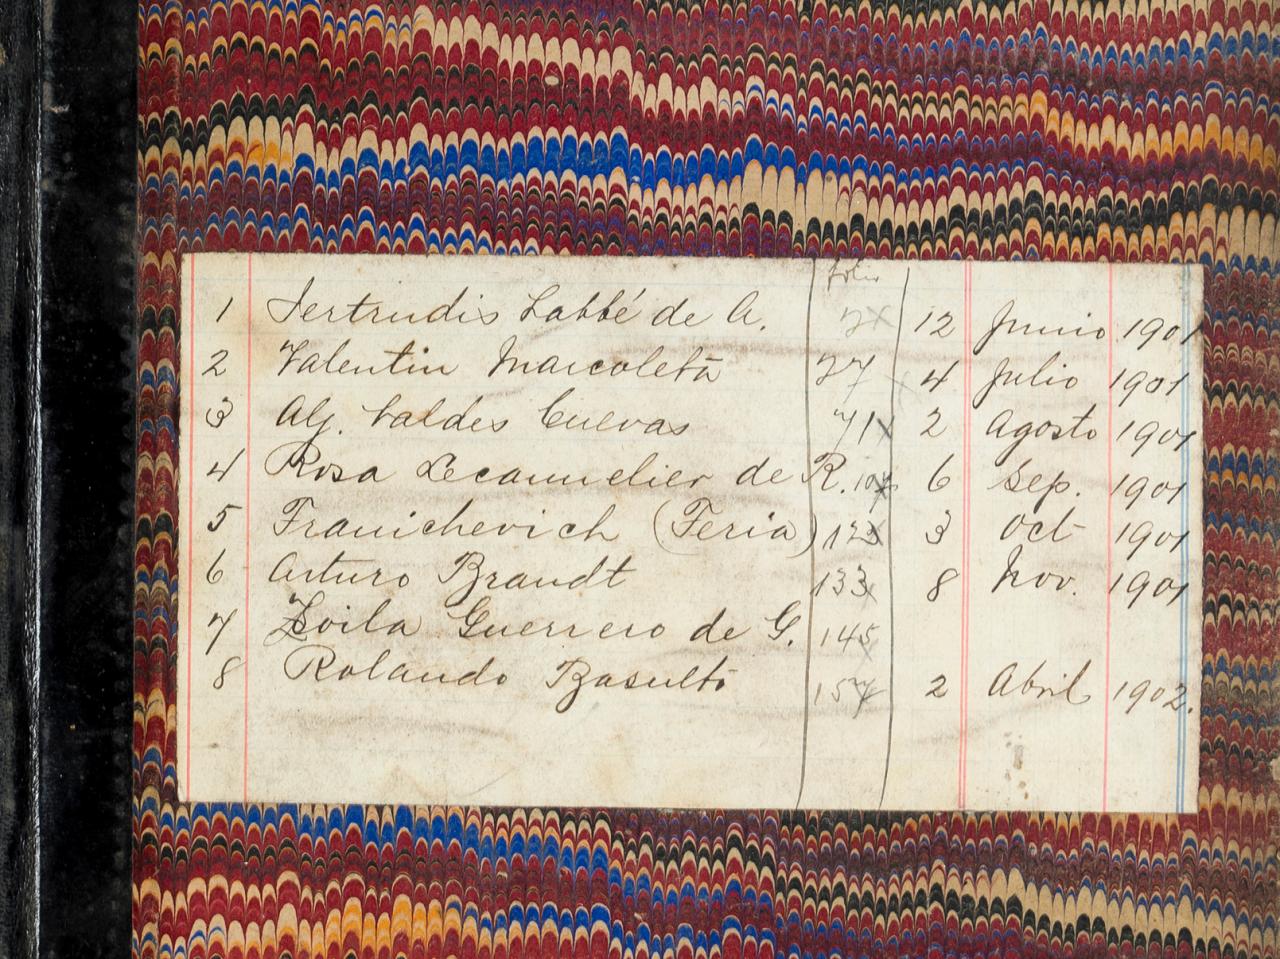 folio
1 Gertrudis Labbé de A. 2 12 Junio 1901
2 Valentin Marcoleta 27 4 Julio 1901
3 Alj. Valdes Cuevas 71 2 Agosto 1901
4 Rosa Lecannelier de R. 107 6 Sep. 1901
5 Franichevich (Feria) 123 3 Oct 1901
6 Arturo Brandt 133 8 Nov. 1901
7 Zoila Guerrero de G. 145
8 Rolando Basulto 157 2 Abril 1902.